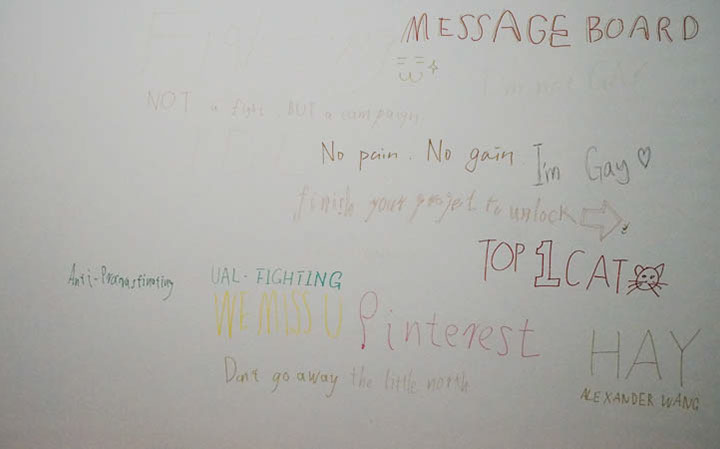 MESSAGE BOARD
I'm not GAY
NOT a fight. BUT a campaign
No pain. No gain
I'm Gay
finish your projet to unlock
TOP 1 CAT
Anti-Procrastinating
UAL-FIGHTING
WE MISS U
Pinterest
HAY
Don't go away the little north
ALEXANDER WANG